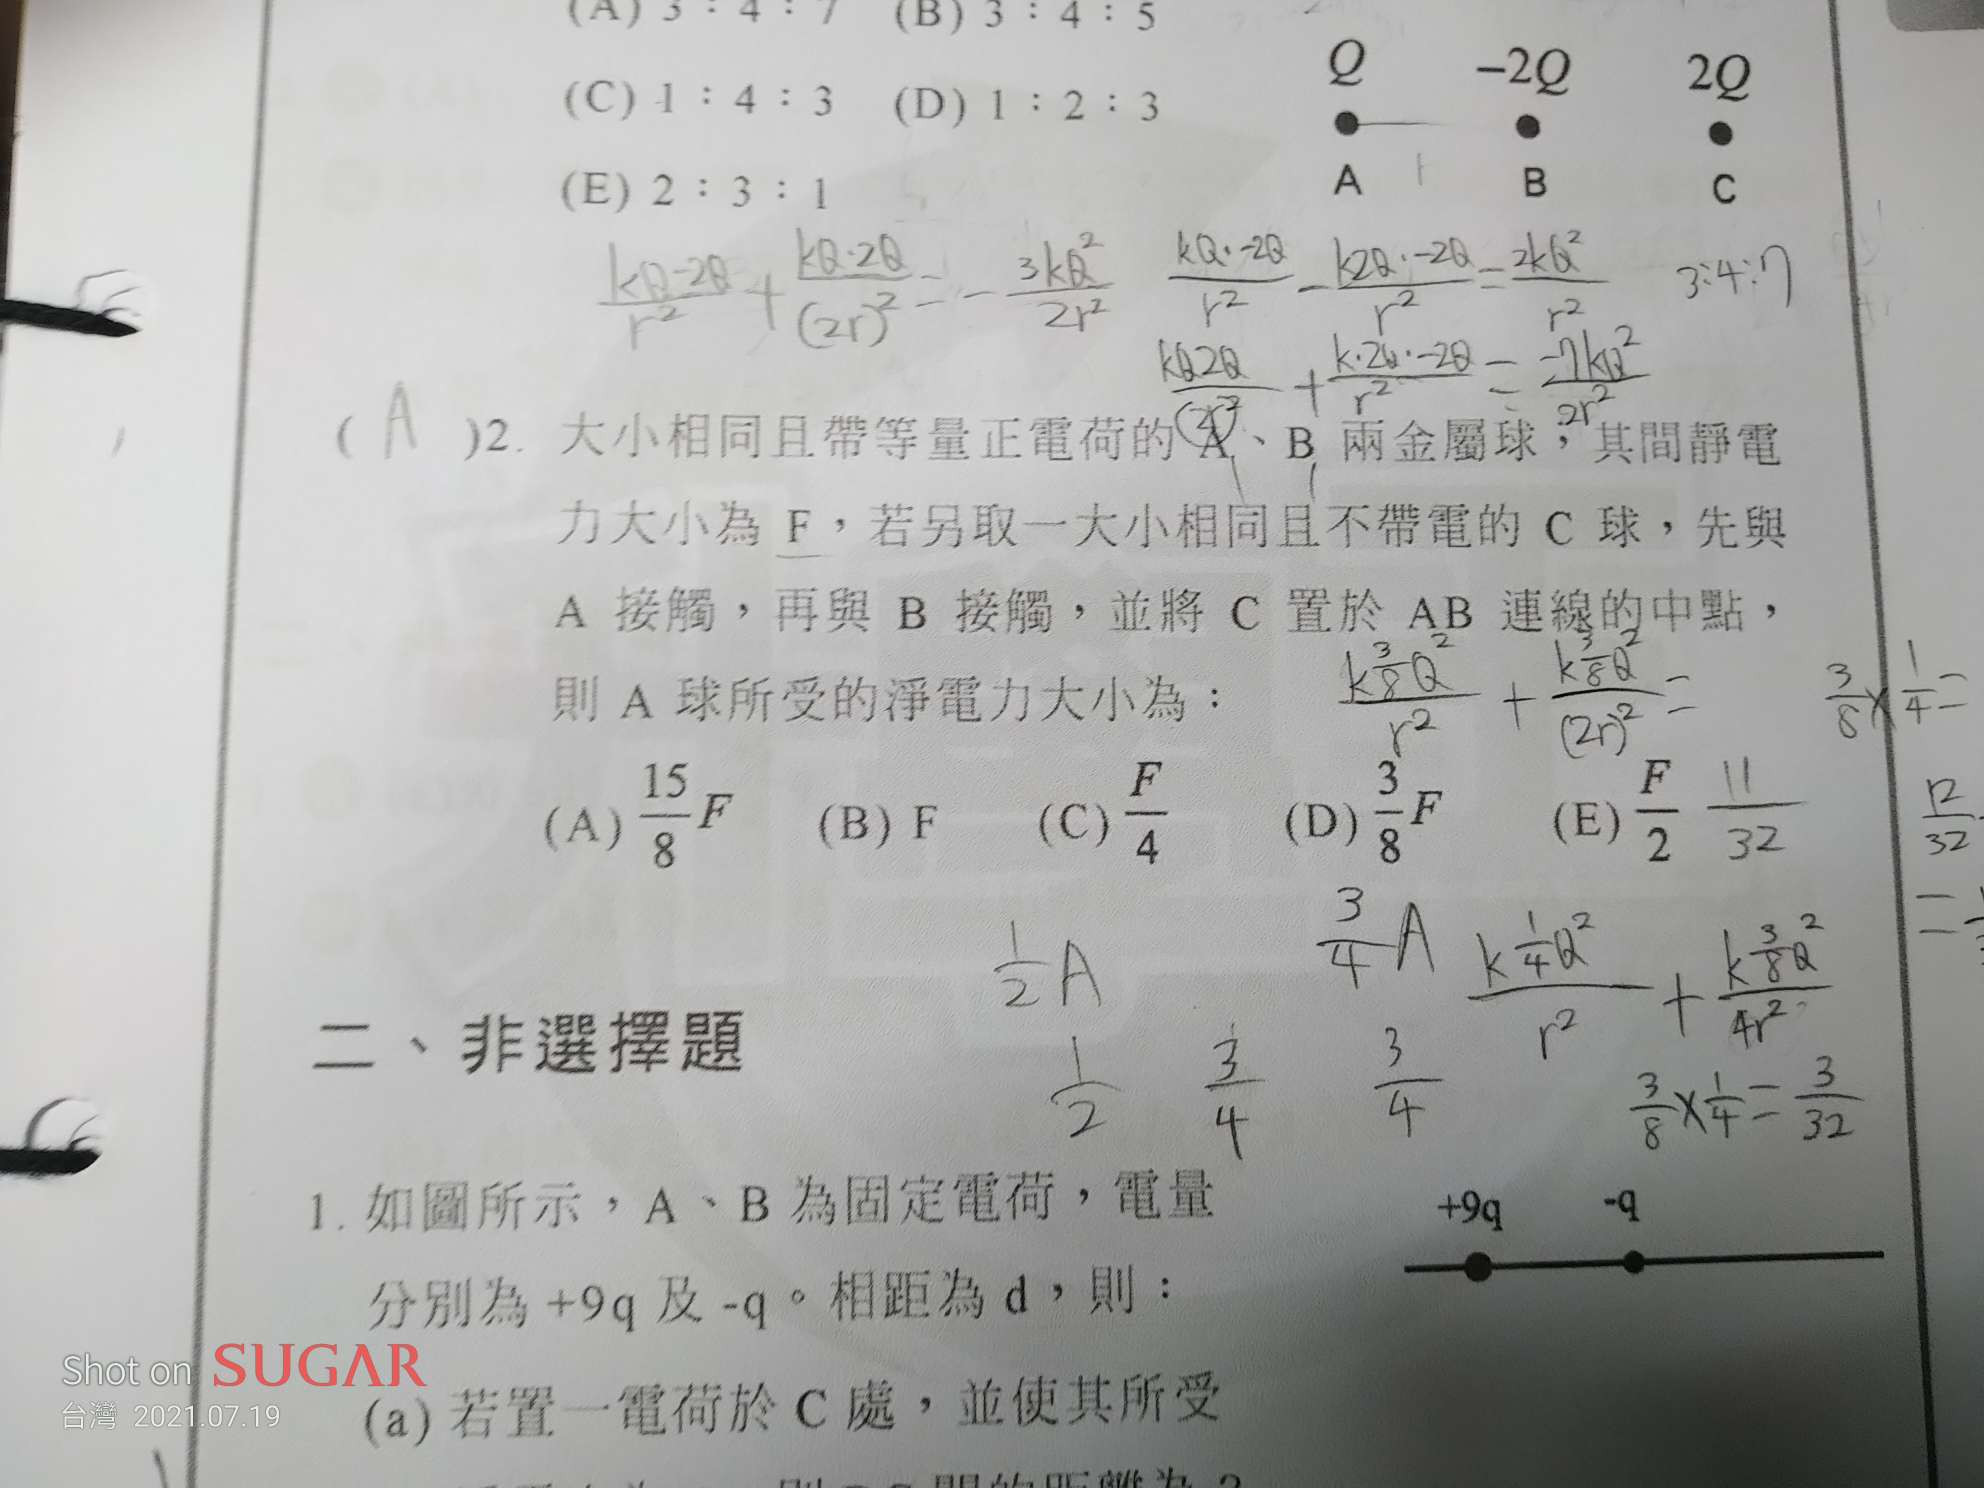 (A) 3：4：7 (B) 3：4：5
(C) 1：4：3 (D) 1：2：3
(E) 2：3：1
Q -2Q 2Q
A r B C
kQ-2Q/r² + kQ·2Q/(2r)² = -3kQ²/2r²
kQ·-2Q/r² - k2Q·-2Q/r² = 2kQ²/r² 3:4:7
kQ2Q/(2r)² + k·2Q·-2Q/r² = -7kQ²/2r²
( A )2. 大小相同且帶等量正電荷的 A、B 兩金屬球，其間靜電
力大小為 F，若另取一大小相同且不帶電的 C 球，先與
A 接觸，再與 B 接觸，並將 C 置於 AB 連線的中點，
則 A 球所受的淨電力大小為：
k3/8Q²/r² + k3/8Q²/(2r)² =
3/8 × 1/4 =
(A) 15/8 F (B) F (C) F/4 (D) 3/8 F (E) F/2
11/32
12/32
=
1/2 A 3/4 A k1/4Q²/r² + k3/8Q²/4r²
1/2 3/4 3/4
3/8 × 1/4 = 3/32
二、非選擇題
1. 如圖所示，A、B 為固定電荷，電量
分別為 +9q 及 -q。相距為 d，則：
+9q -q
(a) 若置一電荷於 C 處，並使其所受
間的距離為
Shot on SUGAR
台灣 2021.07.19